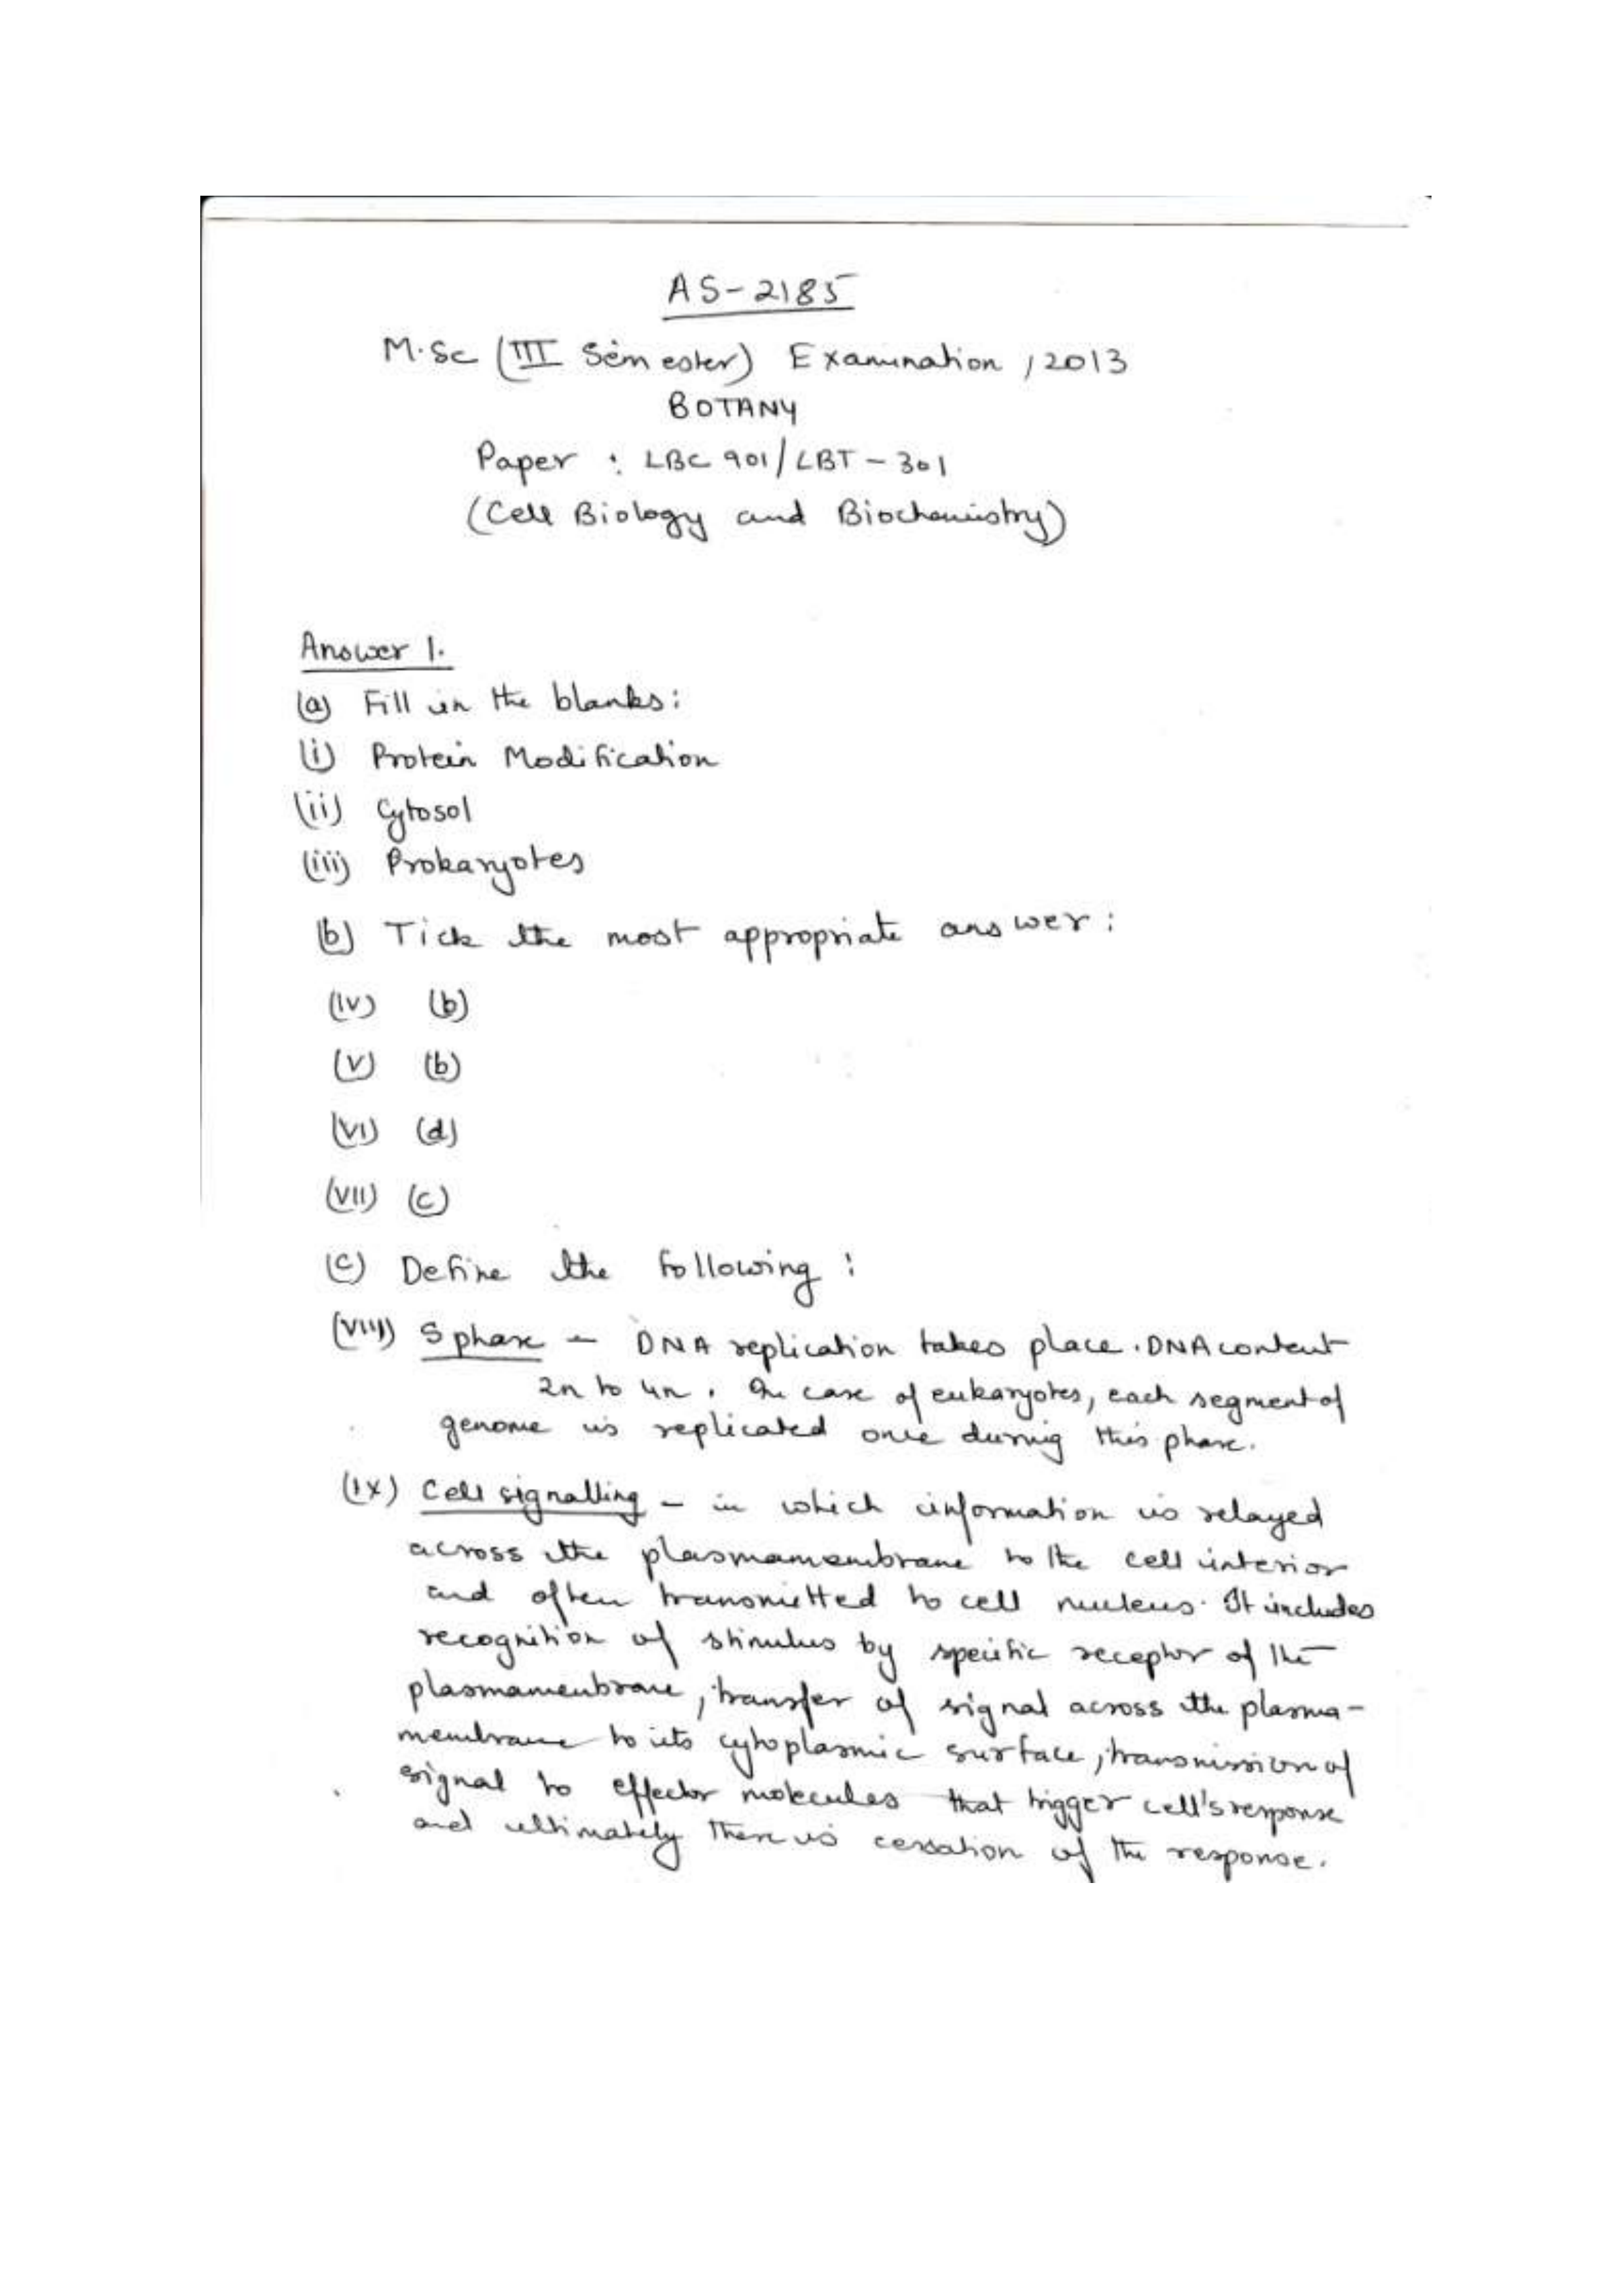 AS-2185
M.Sc (III Semester) Examination, 2013
BOTANY
Paper : LBC 901/LBT-301
(Cell Biology and Biochemistry)
Answer 1.
(a) Fill in the blanks:
(i) Protein Modification
(ii) Cytosol
(iii) Prokaryotes
(b) Tick the most appropriate answer:
(iv) (b)
(v) (b)
(vi) (d)
(vii) (c)
(c) Define the following:
(viii) S phase - DNA replication takes place. DNA content
2n to 4n. In case of eukaryotes, each segment of
genome is replicated once during this phase.
(ix) Cell signalling - in which information is relayed
across the plasmamembrane to the cell interior
and often transmitted to cell nucleus. It includes
recognition of stimulus by specific receptor of the
plasmamembrane, transfer of signal across the plasma-
membrane to its cytoplasmic surface, transmission of
signal to effector molecules that trigger cell's response
and ultimately there is cessation of the response.